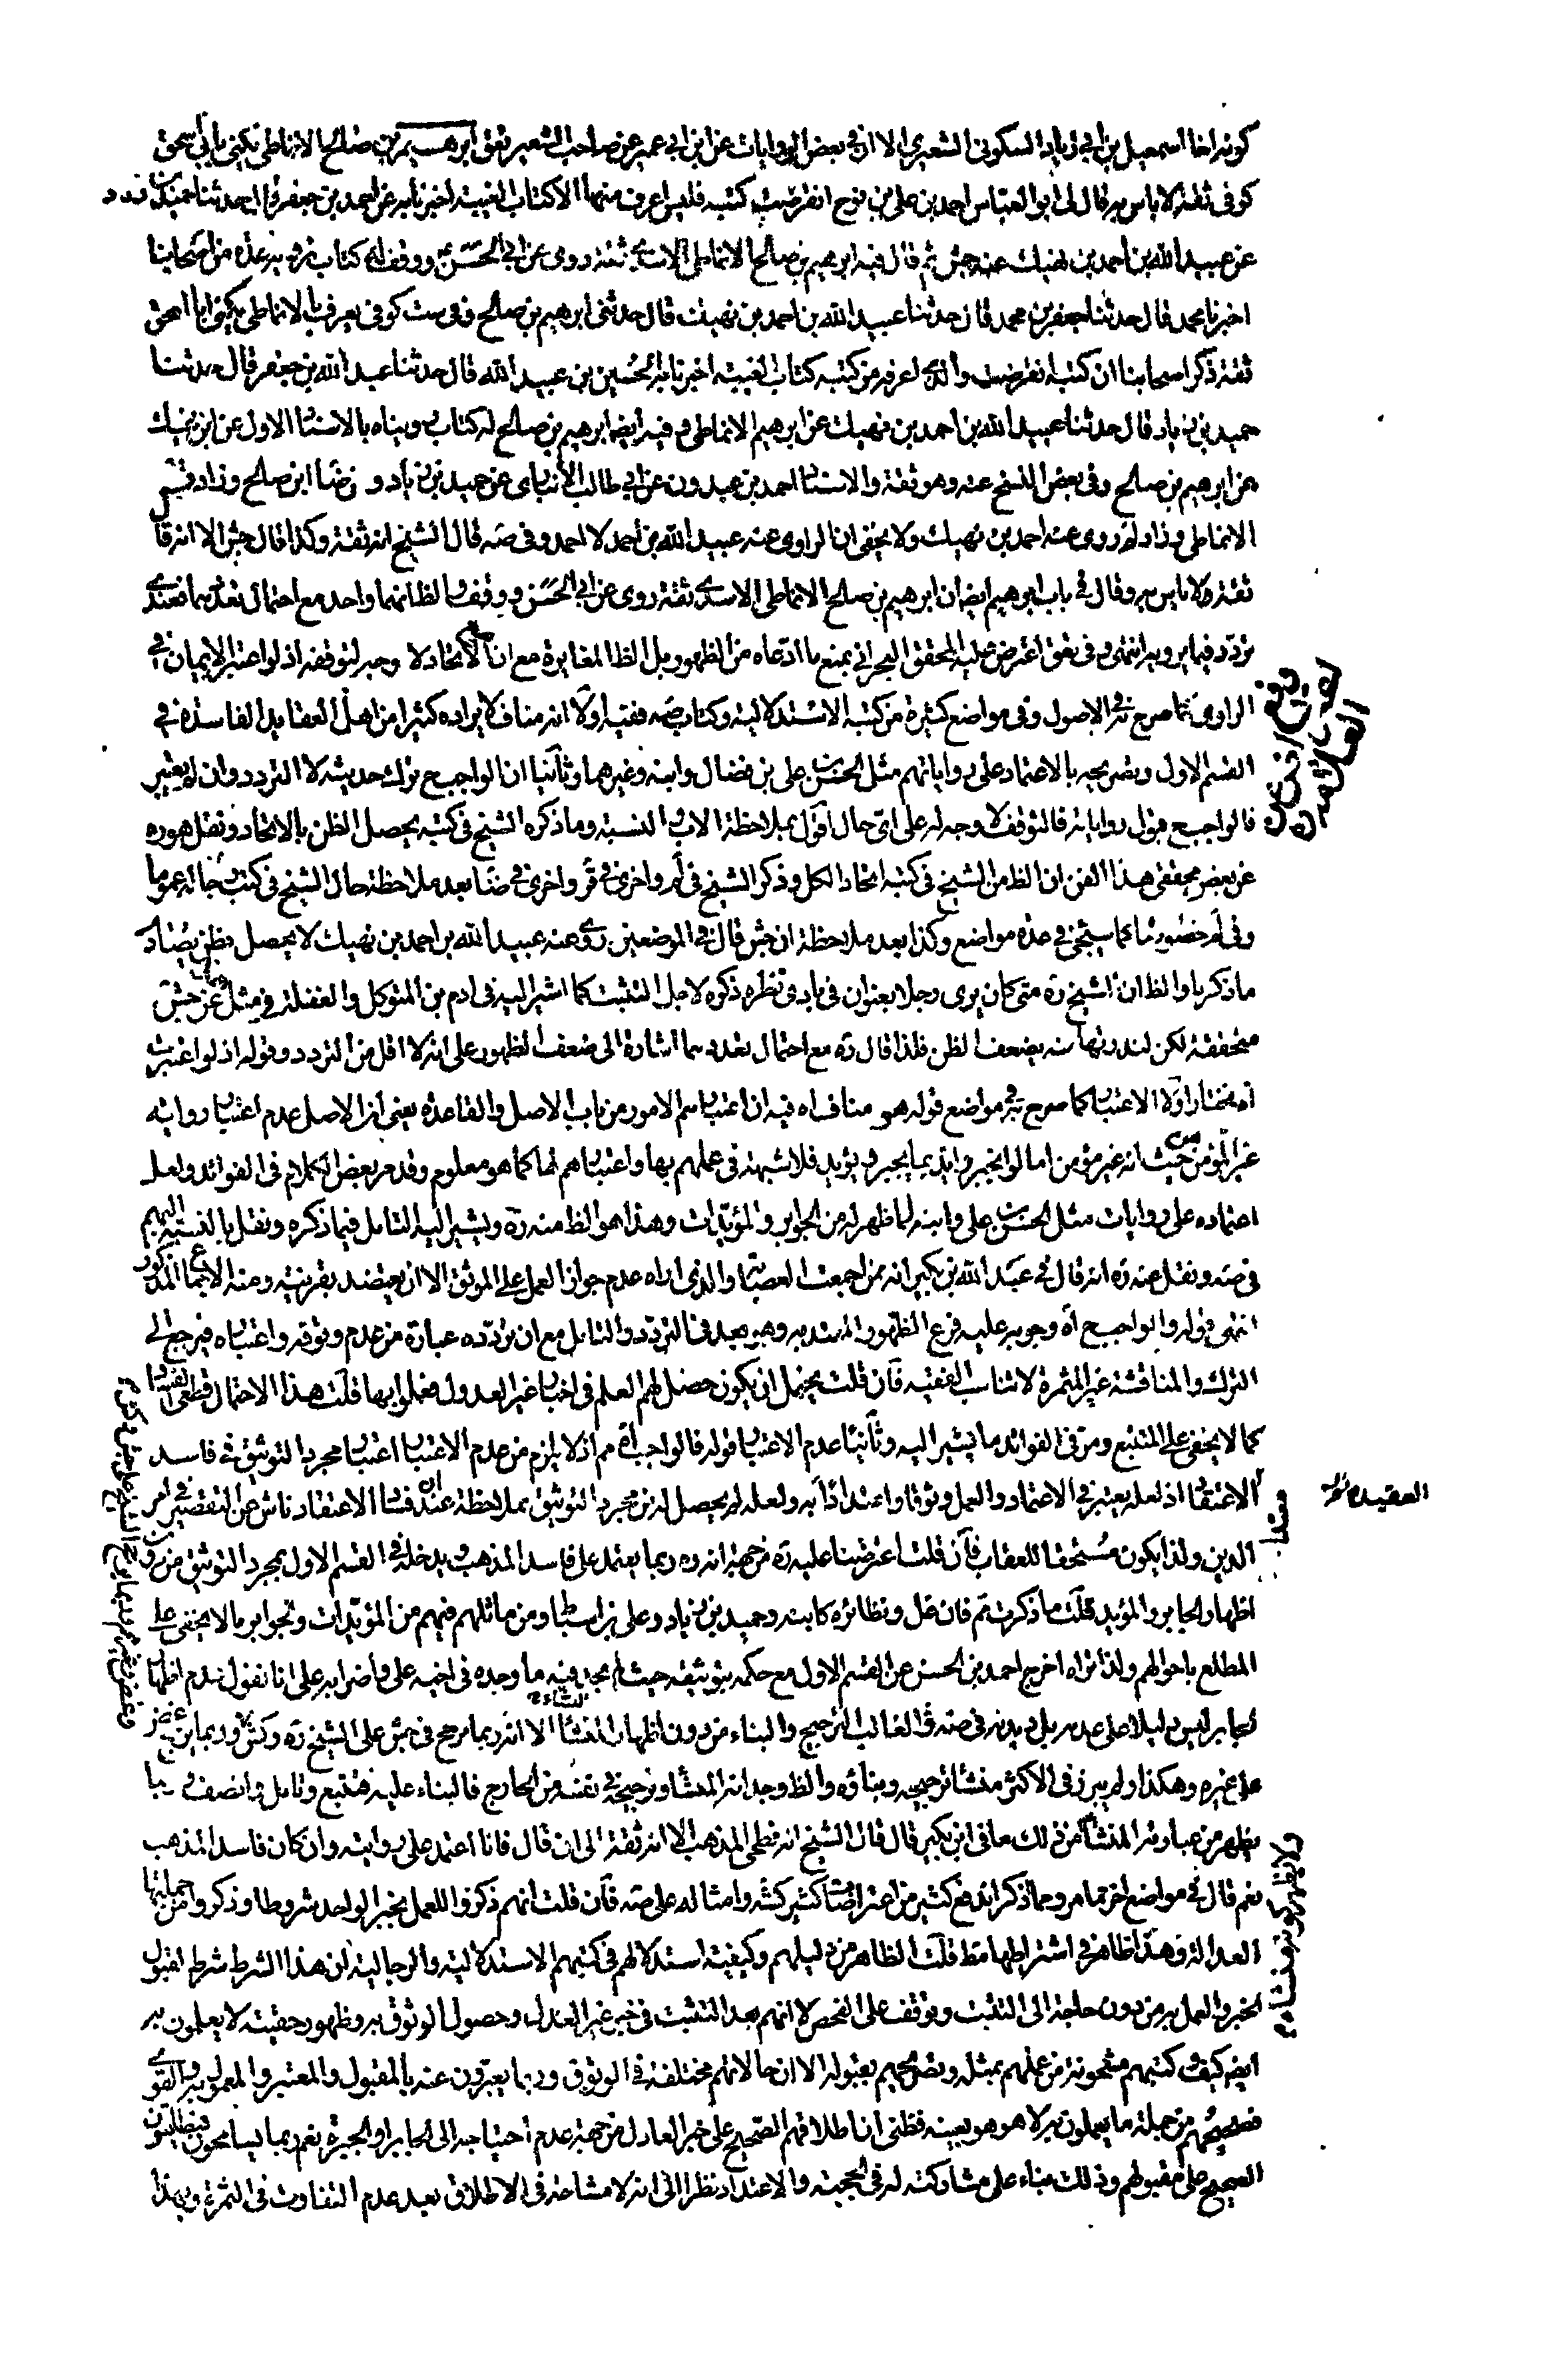 كونه اخا اسمعيل بن ابي زياد السكوني الشعيري الا ان في بعض الروايات عن ابن ابي عمير عن صاحب الشعير تعق ابرهيم بن صالح الانماطي يكنى بابي اسحق
كوفي ثقة لا باس به قال لي ابو العباس احمد بن علي بن نوح انقرضت كتبه فليس اعرف منها الا كتاب الغيبة اخبرنا به عن احمد بن جعفر قال حدثنا حميد بن زياد
عن عبيد الله بن احمد بن نهيك عنه جش ثم قال فيه ابرهيم بن صالح الانماطي الاسدي ثقة روى عن ابي الحسن ع ووقف له كتاب يرويه عدة من اصحابنا
اخبرنا محمد قال حدثنا جعفر بن محمد قال حدثنا عبيد الله بن احمد بن نهيك قال حدثني ابرهيم بن صالح وفي ست كوفي يعرف بالانماطي يكنى ابا اسحق
ثقة ذكر اصحابنا ان كتبه انقرضت والذي اعرفه من كتبه كتاب الغيبة اخبرنا به الحسين بن عبيد الله قال حدثنا عبد الله بن جعفر قال حدثنا
حميد بن زياد قال حدثنا عبيد الله بن احمد بن نهيك عن ابرهيم الانماطي وفيه ايضا ابرهيم بن صالح له كتاب رويناه بالاسناد الاول عن ابن نهيك
عن ابرهيم بن صالح وفي بعض النسخ عنه وهو ثقة والاسناد احمد بن عبدون عن ابي طالب الانباري عن حميد بن زياد و ضا ابن صالح وزاد
الانماطي وزاد له روى عنه احمد بن نهيك ولا يخفى ان الراوي عنه عبيد الله بن احمد لا احمد وفي صه قال الشيخ انه ثقة وكذا قال جش الا انه قال
ثقة لا باس به وقال في باب ابرهيم ايضا ان ابرهيم بن صالح الانماطي الاسدي ثقة روى عن ابي الحسن ووقف والظ انهما واحد مع احتمال تعددهما فعندي
تردد فيما يرويه انتهى وفي تعق اعترض عليه المحقق البحراني بمنع ما ادعاه من الظهور بل الظ المغايرة مع ان الاتحاد لا وجه لتوقفه اذ لو اعتبر الايمان في
الراوي كما صرح به في الاصول وفي مواضع كثيرة من كتبه الاستدلالية وكتاب صه ففيه اولا انه مناف لايراده كثيرا من اهل العقايد الفاسدة في
القسم الاول وتصريحه بالاعتماد على رواياتهم مثل الحسن بن علي بن فضال وابنه وغيرهما وثانيا ان الواجب ح ترك حديثه لا التردد وان لم يعتبر
فالواجب ح قبول رواياته فالتوقف لا وجه له على اي حال اقول بملاحظة الاب والنسبة وما ذكره الشيخ في كتبه يحصل الظن بالاتحاد ونقل
عن بعض محققي هذا الفن ان الظ من الشيخ في كتبه اتحاد الكل وذكر الشيخ في لم واخرى في قر واخرى في ضا بعد ملاحظة حال الشيخ في كتب رجاله عموما
وفي لم خصوصا كما سيجئ في عدة مواضع وكذا بعد ملاحظة ان جش قال في الموضعين روى عنه عبيد الله بن احمد بن نهيك لا يحصل بظن يضاد
ما ذكرنا والظ ان الشيخ ره متى كان يرى رجلا بعنوان في بادي نظره ذكره لاجل التثبت كما اشير اليه في ادم بن المتوكل والغفلة في مثل عن جش
متحققة لكن لندرتها منه يضعف الظن فلذا قال ره مع احتمال تعددهما اشارة الى ضعف الظهور على انه لا اقل من التردد وقوله اذ لو اعتبرت
اه نختار اولا الاعتبار كما صرح به في مواضع قوله هو منافاه فيه ان اعتبارهم الامور من باب الاصل والقاعدة يعني ان الاصل عدم اعتبار رواية
غير المؤمن من حيث انه غير مؤمن اما لو انجبر وايد بما يجبر ويؤيد فلا شبهة في عملهم بها واعتبارهم لها كما هو معلوم وقد مر بعض الكلام في الفوائد ولعل
اعتماده على روايات مثل الحسن بن علي وابنه لما ظهر له من الجوابر والمؤيدات وهذا هو الظ منه ره ويشير اليه التامل فيما ذكره ونقل بالنسبة اليهم
في صه ونقل عنه ره انه قال في عبد الله بن بكير انه ممن اجمعت العصابة والذي اراه عدم جواز العمل على الموثق الا ان يعتضد بقرينة ومنه الاجماع المذكور
انتهى قوله والواجب ح اه وجوبه عليه فرع الظهور المعتد به وهو بعد في التردد والتامل مع ان تردده عبارة عن عدم وثوقه واعتباره فيرجع الى
الترك والمناقشة غير المثمرة لا تناسب الفقيه فان قلت يحتمل ان يكون حصل لهم العلم في اخبار غير العدول فعملوا بها قلت هذا الاحتمال قطعي الفساد
كما لا يخفى على المتتبع ومر في الفوائد ما يشير اليه وثانيا عدم الاعتبار قوله فالواجب اه مم اذ لا يلزم من عدم الاعتبار اعتبار مجرد التوثيق في فاسد
الاعتقاد اذ لعله يعتبر في الاعتماد والعمل وثوقا واعتدادا به ولعله لم يحصل له من مجرد التوثيق بملاحظة ان عنده فساد الاعتقاد ناش عن التقصير في امر
الدين ولذا يكون مستحقا للعقاب فان قلت اعترضنا عليه ره من جهة انه ره ربما يعتمد على فاسد المذهب ويدخله في القسم الاول بمجرد التوثيق من دون
اظهار الجابر والمؤيد قلت ما ذكرت مم فان عل ونظائره كابنه وحميد بن زياد وعلي بن اسباط ومن ماثلهم فيهم من المؤيدات والجوابر ما لا يخفى على
المطلع باحوالهم ولذا تراه اخرج احمد بن الحسن عن القسم الاول مع حكمه بتوثيقه حيث لم يجد فيه ما وجده في اخيه علي واضرابه على انا نقول عدم اظهار
الجابر ليس دليلا على عدمه بل ديدنه في صه في الغالب الترجيح والبناء من دون اظهار المنشأ الا انه ربما يرجح في جش على الشيخ ره وكش وربما يرجح غض
على غيره وهكذا ولم يبرز في الاكثر منشا ترجيحه وبناؤه والظ وجدانه المنشا وترجيحه في نفسه من الخارج فالبناء عليه فتتبع وتامل وانصف ربما
يظهر من عبارته المنشأ من ذلك ما في ابن بكير قال قال الشيخ انه فطحي المذهب الا انه ثقة الى ان قال فانا اعتمد على روايته وان كان فاسد المذهب
نعم قال في مواضع اخر ما مر ومما ذكر اندفع كثير من اعتراضات كثير كشه وامثاله على صه فان قلت انهم ذكروا للعمل بخبر الواحد شروطا وذكروا من جملتها
العدالة وهذا ظاهر في اشتراطها فقط قلت الظاهر من دليلهم وكيفية استدلالهم في كتبهم الاستدلالية والرجالية ان هذا الشرط شرط لقبول
الخبر والعمل به من دون حاجة الى التثبت وتوقف على الفحص لا انهم بعد التثبت في خبر غير العدل وحصول الوثوق به وظهور حقيته لا يعملون به
ايضا كيف وكتبهم مشحونة من عملهم بمثله وتصريحهم بقبوله الا ان حالاتهم مختلفة في الوثوق وربما يعبرون عنه بالمقبول والمعتبر والمعمول به والقوي
فصحيحهم من جملة ما يعملون به لا هو هو بعينه فظني ان اطلاقهم الصحيح على خبر العادل من جهة عدم احتياجه الى الجابر او الجبيرة نعم ربما يسامحون فيطلقون
الصحيح على مقبولهم وذلك بناء على مشاركته له في الحجية والاعتداد نظرا الى انه لا مشاحة في الاطلاق بعد عدم التفاوت في الثمرة وبهذا
العقيدة